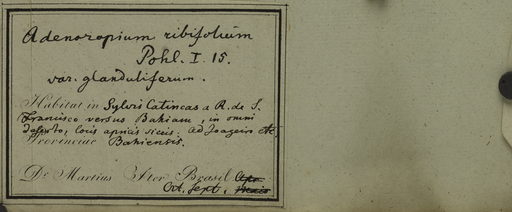 Adenoropium ribifolium
Pohl. I. 15.
var. glanduliferum.
Habitat in Sylvis Catingas a R. de S.
Francisco versus Bahiam, in omni
deserto, locis apricis siccis. ad Joazeiro etc.
Provinciae Bahiensis.
Dr. Martius Iter Brasil
Oct. Sept.